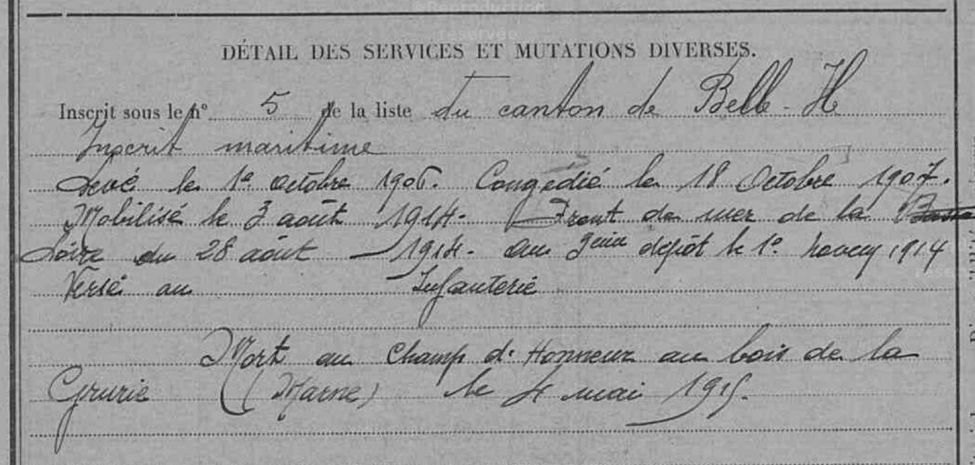 ©Reproduction
réservée
DÉTAIL DES SERVICES ET MUTATIONS DIVERSES.
Inscrit sous le n° 5 de la liste du canton de Belle-Il
Inscrit maritime
Levé le 1er octobre 1906. Congédié le 18 Octobre 1907.
Mobilisé le 3 août 1914. Front de mer de la Basse
Loire du 28 août 1914. au 3eme dépôt le 1er novem 1914
Versé au Infanterie
Mort au Champ d'Honneur au bois de la
Grurie (Marne) le 4 mai 1915.